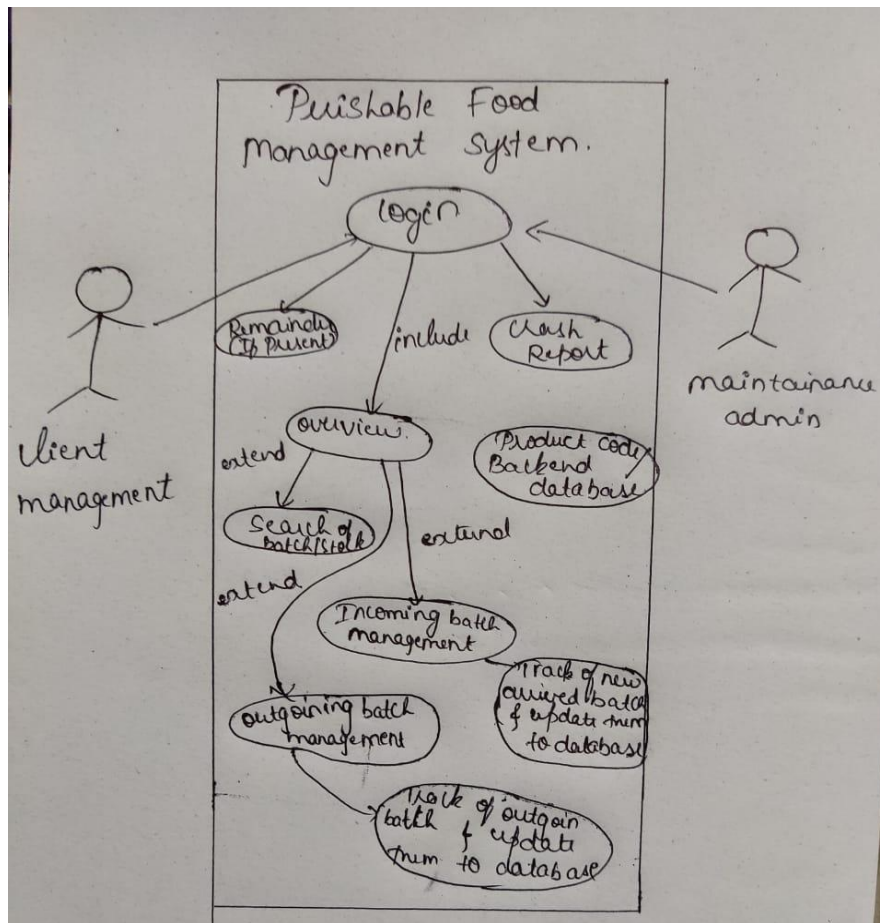 Perishable Food
Management System.
Login
Remainder
(If Present)
include
Crash
Report
client
management
maintainance
admin
overview.
extend
Product code
Backend
database
Search of
batch/stock
extend
extend
Incoming batch
management
Track of new
arrived batch
& update them
to database
outgoining batch
management
Track of outgoin
batch & update
them to database